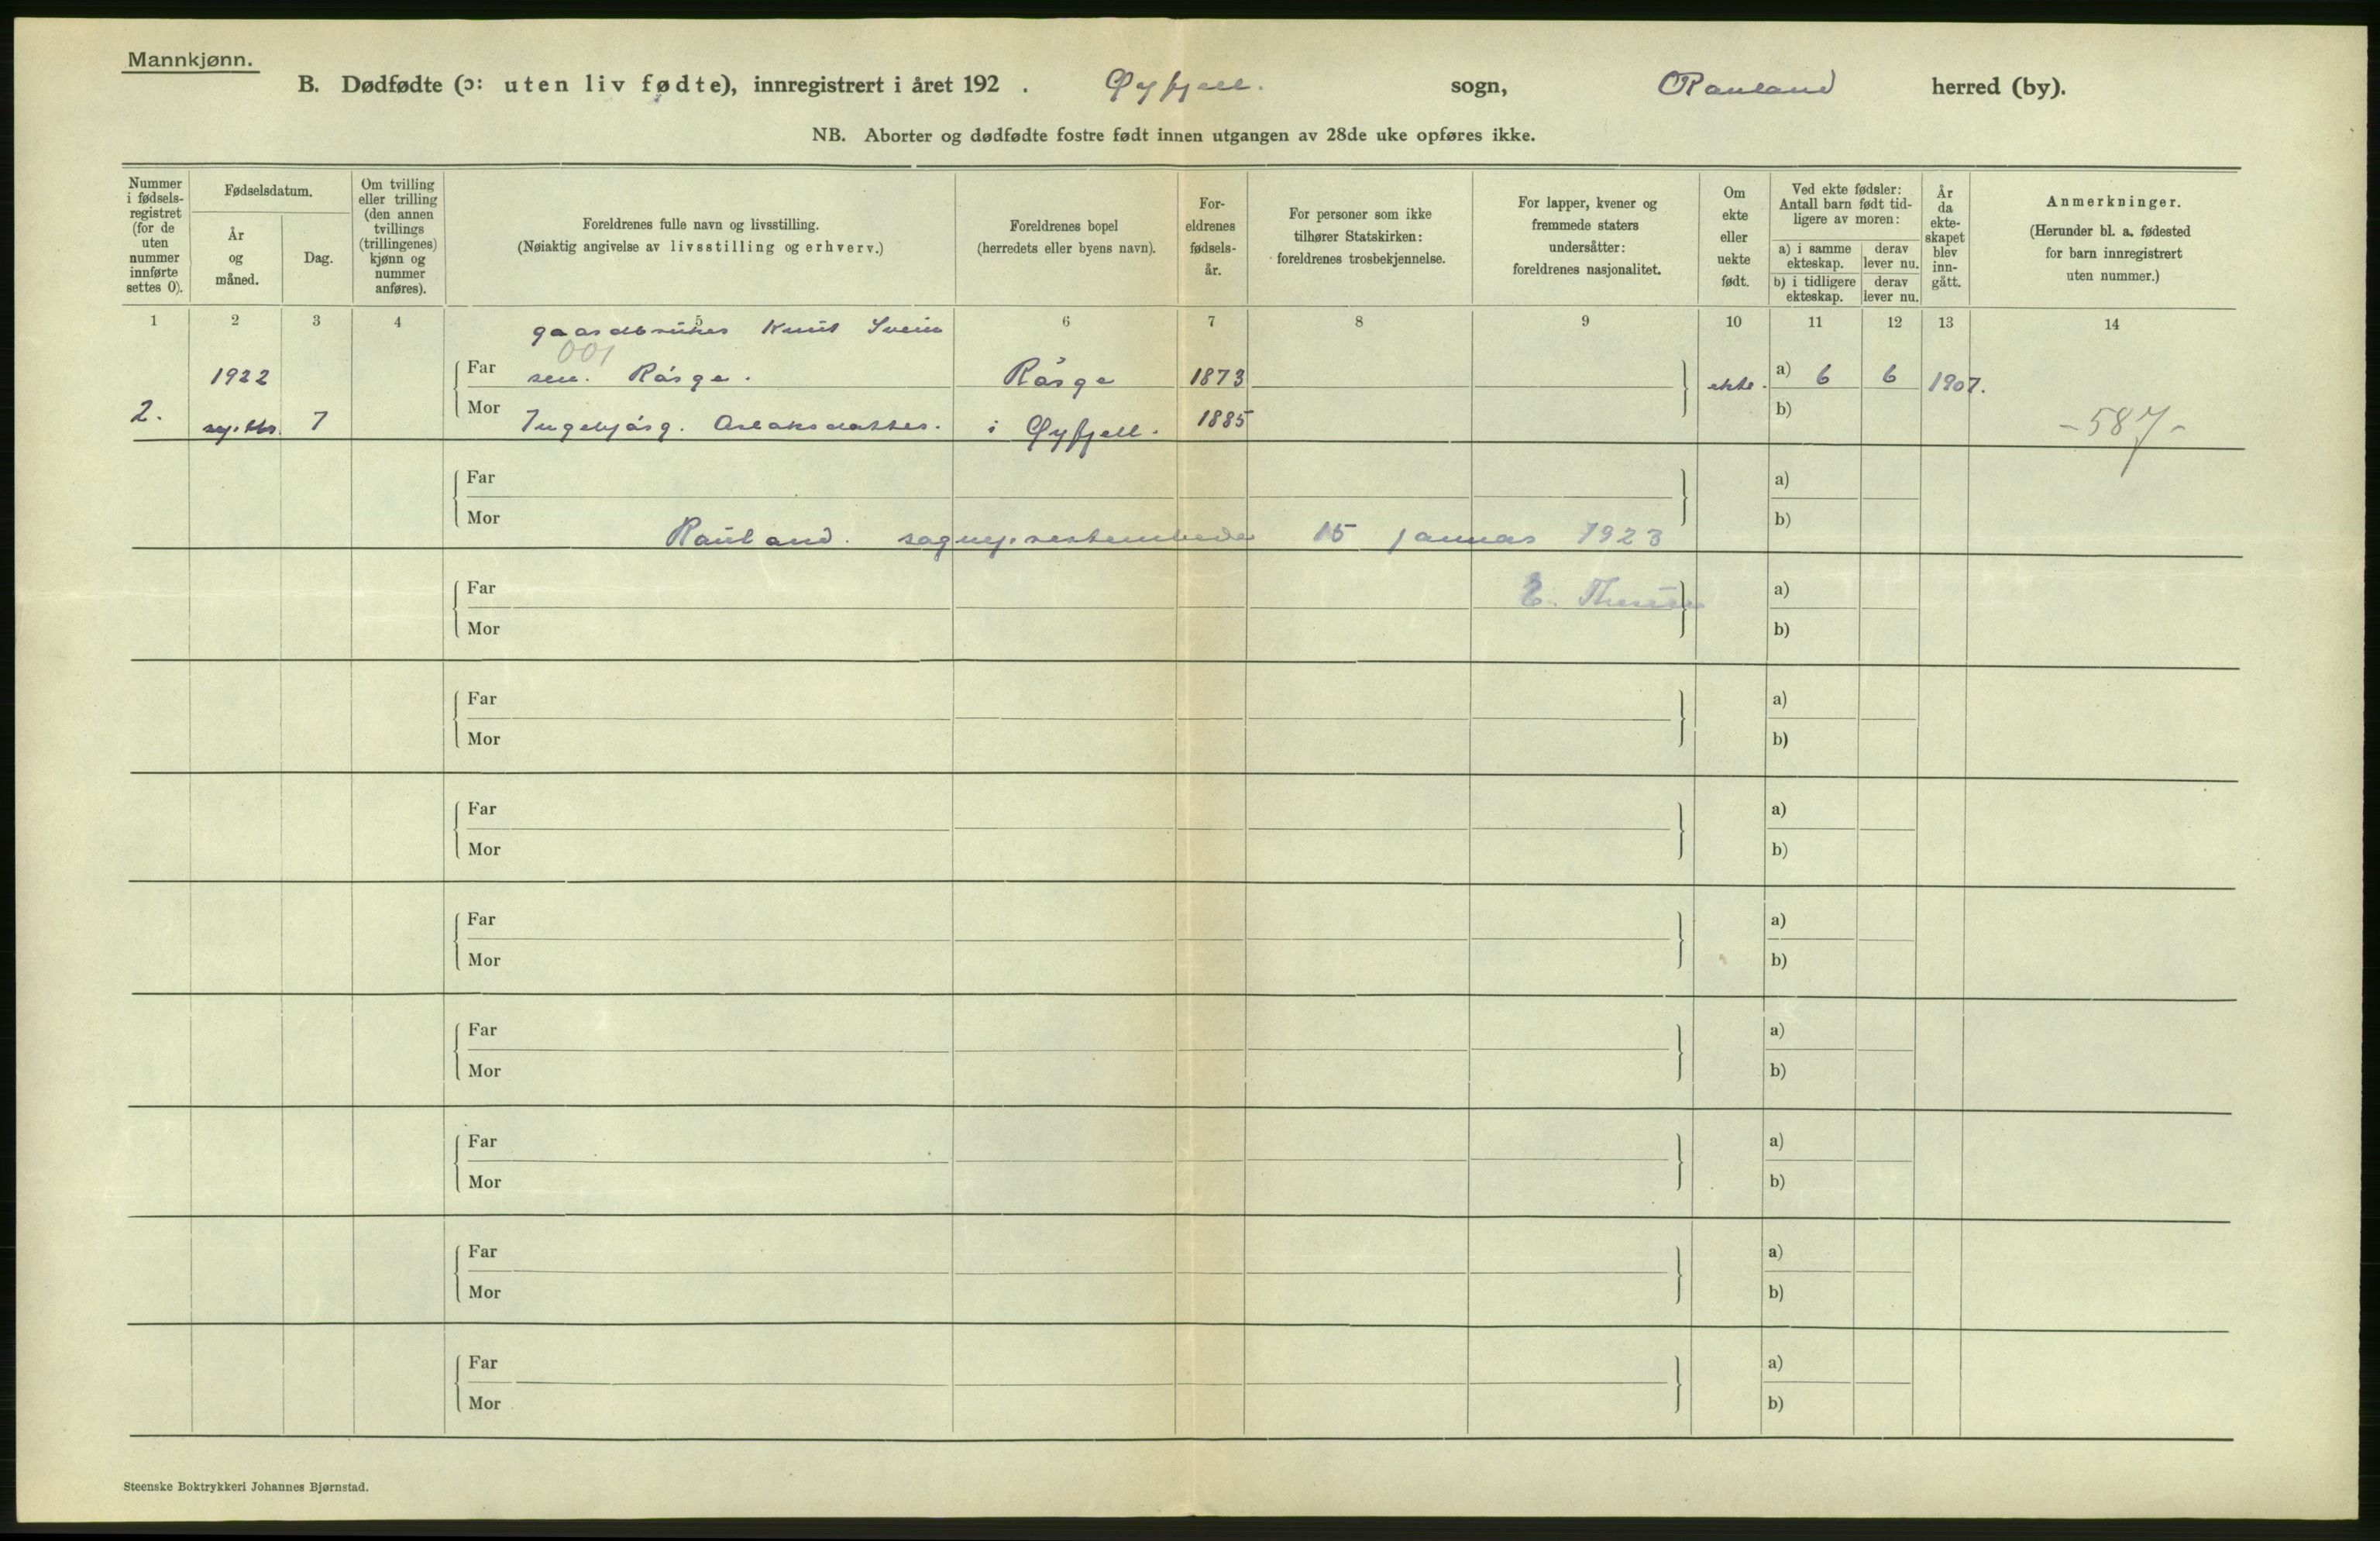 Mannkjønn.
B. Dødfødte (ɔ: uten liv fødte), innregistrert i året 192 . Øyfjell. sogn, Rauland herred (by).
NB. Aborter og dødfødte fostre født innen utgangen av 28de uke opføres ikke.
Nummer i fødsels-registret (for de uten nummer innførte settes 0).
Fødselsdatum.
År og måned.
Dag.
Om tvilling eller trilling (den annen tvillings (trillingenes) kjønn og nummer anføres).
Foreldrenes fulle navn og livsstilling.
(Nøiaktig angivelse av livsstilling og erhverv.)
Foreldrenes bopel
(herredets eller byens navn).
For-eldrenes fødsels-år.
For personer som ikke tilhører Statskirken: foreldrenes trosbekjennelse.
For lapper, kvener og fremmede staters undersåtter: foreldrenes nasjonalitet.
Om ekte eller uekte født.
Ved ekte fødsler: Antall barn født tid-ligere av moren:
a) i samme ekteskap. derav lever nu.
b) i tidligere ekteskap. derav lever nu.
År da ekte-skapet blev inn-gått.
Anmerkninger.
(Herunder bl. a. fødested for barn innregistrert uten nummer.)
1 2 3 4 5 6 7 8 9 10 11 12 13 14
gaardbruker Knut Svein
001
1922 Far sen. Råsge. Råsge 1873 ekte. a) 6 6 1907.
2. septbr. 7 Mor Ingebjørg. Aslaksdatter. i Øyfjell. 1885 b) -587-
Far a)
Mor b)
Rauland. sogneprestembede 15 januar 1923
Far E. a)
Mor b)
Far a)
Mor b)
Far a)
Mor b)
Far a)
Mor b)
Far a)
Mor b)
Far a)
Mor b)
Far a)
Mor b)
Far a)
Mor b)
Steenske Boktrykkeri Johannes Bjørnstad.